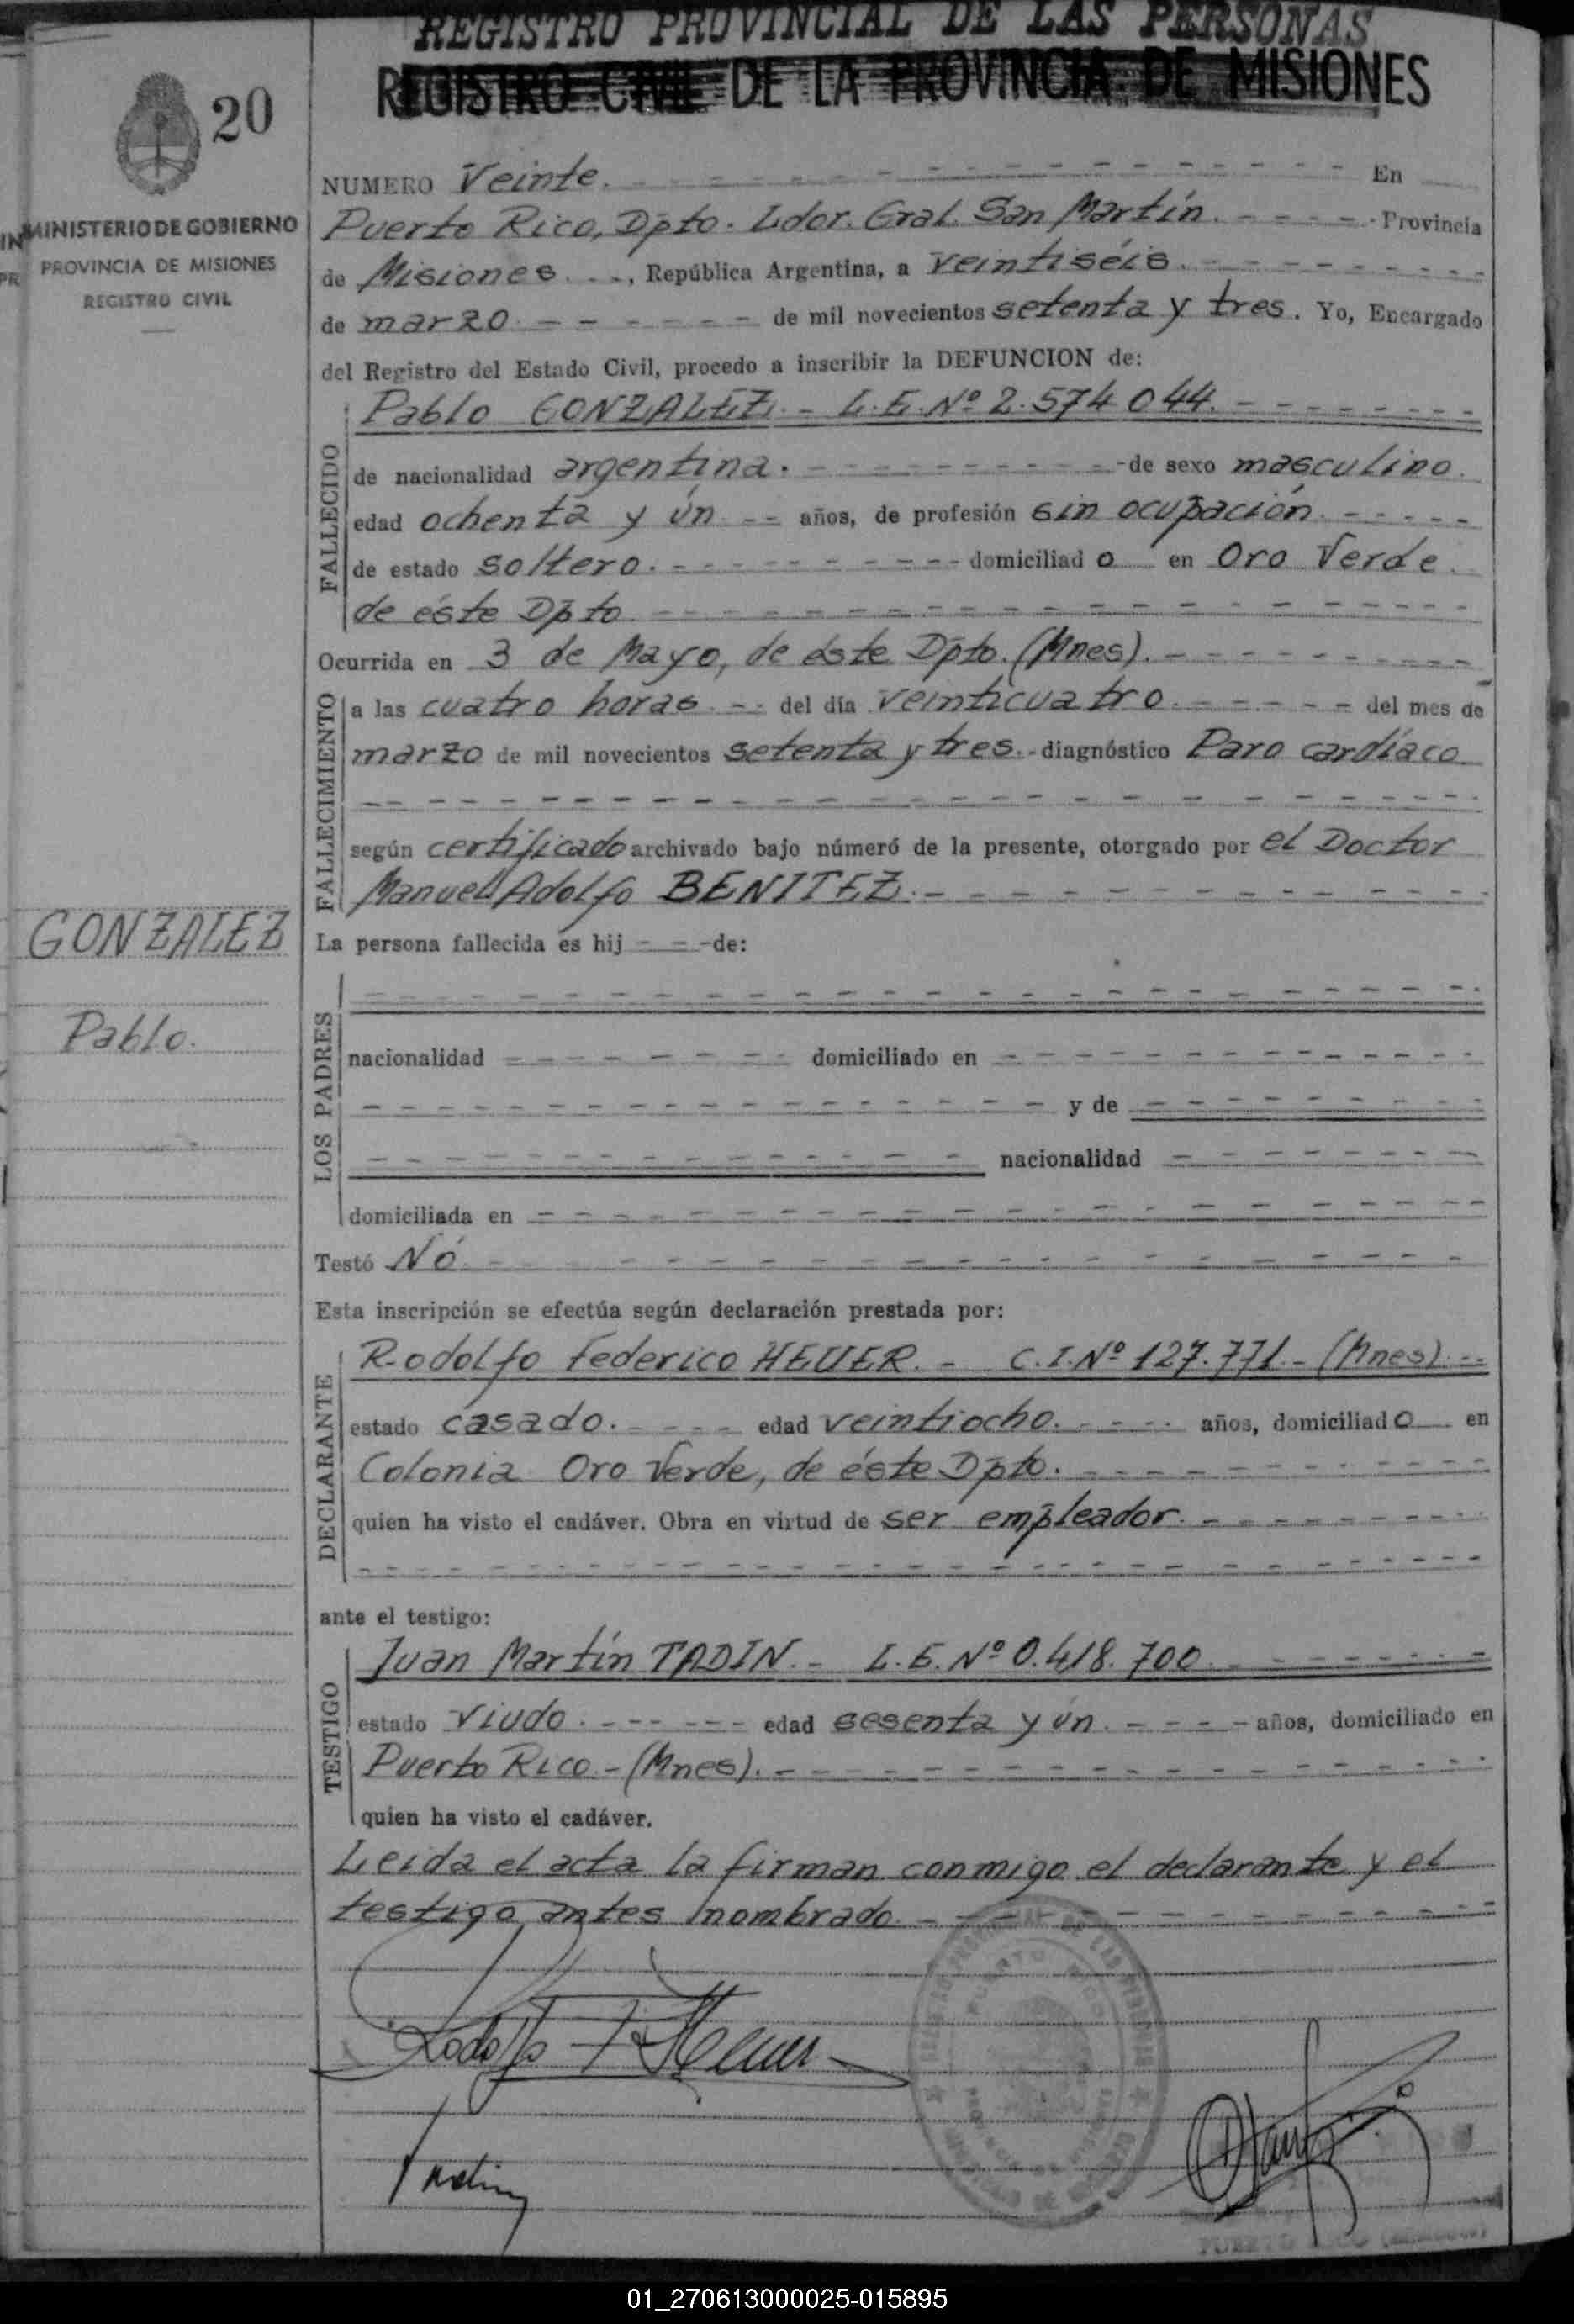 REGISTRO PROVINCIAL DE LAS PERSONAS
REGISTRO CIVIL DE LA PROVINCIA DE MISIONES
20
MINISTERIO DE GOBIERNO
PROVINCIA DE MISIONES
REGISTRO CIVIL
NUMERO Veinte. En
Puerto Rico, Dpto. Ldor. Gral. San Martín. Provincia
de Misiones, República Argentina, a veintiséis
de marzo de mil novecientos setenta y tres. Yo, Encargado
del Registro del Estado Civil, procedo a inscribir la DEFUNCION de:
Pablo GONZALEZ.- L.E.Nº 2.574.044.
FALLECIDO
de nacionalidad argentina. de sexo masculino.
edad ochenta y ún años, de profesión sin ocupación.
de estado soltero. domiciliado en Oro Verde
de éste Dpto
Ocurrida en 3 de Mayo, de éste Dpto. (Mnes).
FALLECIMIENTO
a las cuatro horas del día veinticuatro. del mes de
marzo de mil novecientos setenta y tres.- diagnóstico Paro cardíaco
según certificado archivado bajo número de la presente, otorgado por el Doctor
Manuel Adolfo BENITEZ.
GONZALEZ
Pablo.
La persona fallecida es hij - - -de:
LOS PADRES
nacionalidad domiciliado en
y de
nacionalidad
domiciliada en
Testó Nó.
Esta inscripción se efectúa según declaración prestada por:
DECLARANTE
Rodolfo Federico HEUER.- C.I.Nº 127.771.- (Mnes)
estado casado. edad veintiocho. años, domiciliado en
Colonia Oro Verde, de éste Dpto.
quien ha visto el cadáver. Obra en virtud de ser empleador.
ante el testigo:
TESTIGO
Juan Martín TADIN.- L.E. Nº 0.418.700
estado viudo. edad sesenta y ún. años, domiciliado en
Puerto Rico - (Mnes).
quien ha visto el cadáver.
Leida el acta la firman conmigo el declarante y el
testigo antes nombrado.
Rodolfo F. Heuer
Tadin
PUERTO RICO
01_270613000025-015895